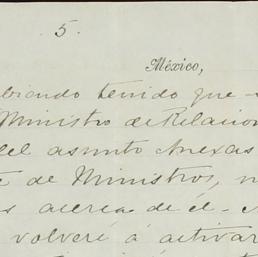 5.
México,
biendo tenido que
Ministro de Relacion
del asunto Anexas
de Ministros,
acerca de él.
volveré á activar